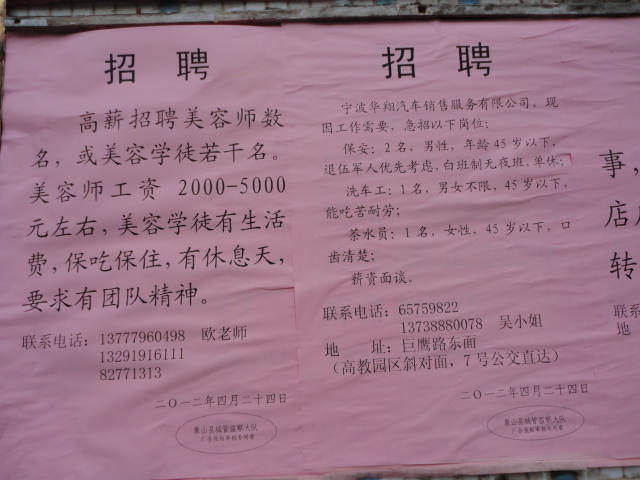 招聘
高薪招聘美容师数
名，或美容学徒若干名。
美容师工资 2000-5000
元左右，美容学徒有生活
费，保吃保住，有休息天，
要求有团队精神。
联系电话：13777960498 欧老师
13291916111
82771313
二〇一二年四月二十四日
象山县城管监察大队
广告张贴审核专用章
招聘
宁波华翔汽车销售服务有限公司，现
因工作需要，急招以下岗位：
保安：2 名，男性，年龄 45 岁以下，
退伍军人优先考虑，白班制无夜班，单休；
洗车工：1 名，男女不限，45 岁以下，
能吃苦耐劳；
茶水员：1 名，女性，45 岁以下，口
齿清楚；
薪资面谈。
联系电话：65759822
13738880078 吴小姐
地 址：巨鹰路东面
（高教园区斜对面，7 号公交直达）
二〇一二年四月二十四日
象山县城管监察大队
广告张贴审核专用章
事，
店
转
联系
地